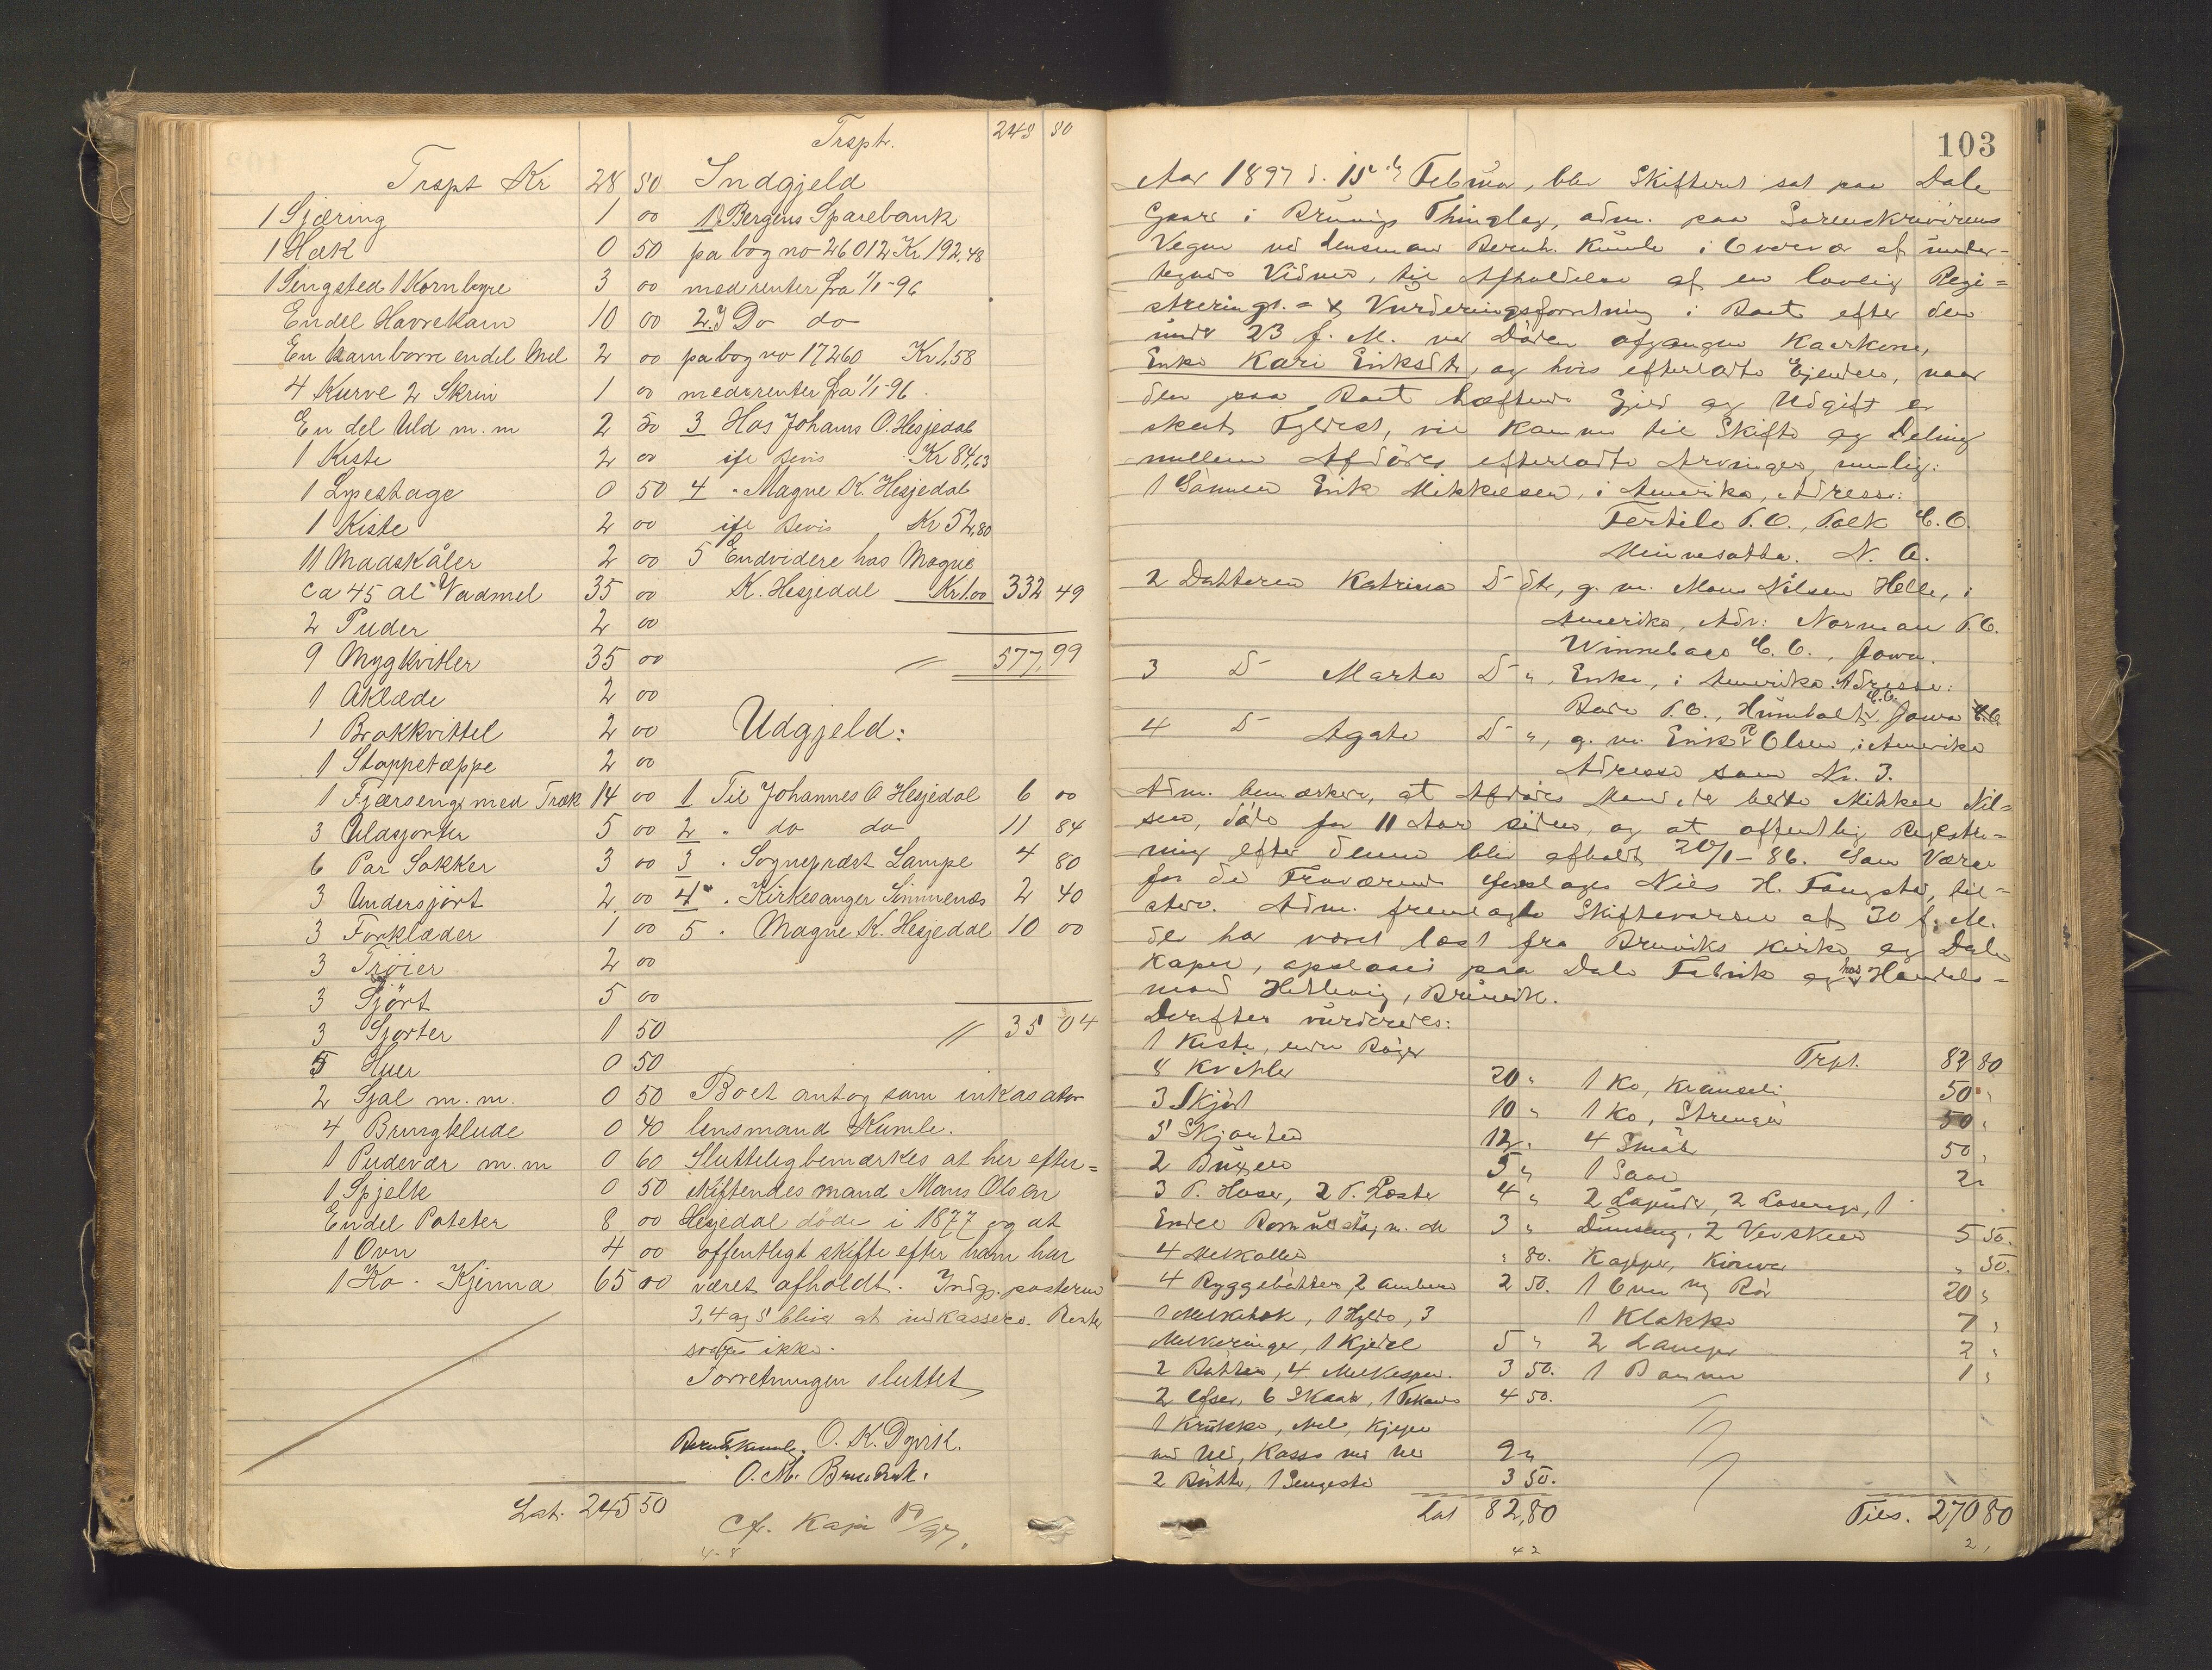 Trspt Kr 28 50
1 Sjæring 1 00
1 Hæk 0 50
1 Sengsted 1 Kornbyre 3 00
Endel Havrekorn 10 00
En kornborre endel Mel 2 00
4 Kurve 2 Skrin 1 00
En del Uld m. m 2 50
1 Kiste 2 00
1 Lysestage 0 50
1 Kiste 2 00
11 Madskåler 2 00
ca 45 al Vadmel 35 00
2 Puder 2 00
9 Mygkvitler 35 00
1 Aklæde 2 00
1 Brokkvittel 2 00
1 Stoppetæppe 2 00
1 Fjærseng med Træk 14 00
3 Uldsjorter 5 00
6 Par Sokker 3 00
3 Undersjört 2 00
3 Forklæder 1 00
3 Trøier 2 00
3 Sjört 5 00
3 Sjorter 1 50
5 Huer 0 50
2 Sjal m. m. 0 50
4 Bringklude 0 40
1 Pudevar m. m 0 60
1 Spjelk 0 50
Endel Poteter 8 00
1 Ovn 4 00
1 Ko - Kjinna 65 00
Lat. 245 50
Trspt. 245 50
Indgjeld
1) Bergens Sparebank
pa bog no 26012 Kr 192,48
med renter fra 1/1-96
2) Do do
pa bog no 17260 Kr 1,58
med renter fra 1/1-96.
3 Hos Johanns O. Hesjedal
ifl bevis Kr 84,63
4 " Magne K. Hesjedal
ifl bevis Kr 52,80
5 Endvidere hos Magne
K. Hesjedal Kr 1.00 332 49
577,99
Udgjeld:
1 Til Johannes O Hesjedal 6 00
2 " do do 11 84
3 " Sogneprest Lampe 4 80
4 " Kirkesanger Simmenæs 2 40
5 " Magne K. Hesjedal 10 00
35 04
Boet antog som inkasator
lensmand Kumle.
Slutteligbemærkes at her efter=
skiftendes mand Mons Olsen
Hesjedal døde i 1877 og at
offentligt skifte efter ham har
været afholdt. Indgj. posterne
3, 4 og 5 bliver at indkassere. Renter
svares ikke.
Forretningen sluttet
Bernt Kumle. O. K. Dyvik.
O. M. Bruvik.
Cfr. Kopi 10/97.
103
Aar 1897 d. 15de Februar, blev Skifteret sat paa Dale
Gaard i Bruvigs Thinglag, adm. paa Sorenskriverens
Vegne ved Lensmand Bernt. Kumle i Overvær af under=
tegnede Vidner, til Afholdelse af en lovlig Regi=
strerings- & Vurderingsforretning i Boet efter den
under 23 f. M. ved Døden afgangne Kaarkone,
Enke Kari Eriksdtr, og hvis efterladte Ejendele, naar
den paa Boet hæftende Gjeld og Udgift er
skeet Fyldest, vil komme til Skifte og Deling
mellem Afdødes efterladte Arvinger, nemlig:
1 Sönnen Erik Mikkelsen, i Amerika, Adresse:
Fertile P.O., Polk C.O.
Minnesotta. N. A.
2 Datteren Katrina D- dtr, g. m. Mons Nilsen Helle, i
Amerika, Adr: Norman P.O.
Winnebago C.O., Jowa.
3 D- Marta D- ", Enke, i Amerika. Adresse:
P.O., Humbolt C.O. Jowa
4 D- Agate D- ", g. m. Erik P. Olsen, i Amerika
Adresse som No. 3.
Adm. bemærker, at Afdødes Mand, der hedte Mikkel Nil=
sen, døde for 11 Aar siden, og at offentlig Registre=
ring efter denne blev afholdt 20/1-86. Som Værge
for de Fraværende foreslages Nils H. Fougstad, til=
stede. Adm. fremlagde Skiftevarsel af 30 f. M.
der har været læst fra Bruviks Kirke og Dale
Kapel, opslaaet paa Dale Fabrik og hos Handels=
mand Hetlevig, Bruvik.
Derefter vurderedes:
1 Kiste, endel Bøger
8 Kvitler 20 "
3 Skjört 10 "
5 Skjorter 12 "
2 Buxer 5 "
3 P. Hoser, 2 P. Læster 4 "
Endel m. M 3 "
4 Melkoller " 80.
4 Ryggebötter, 2 Ambere 2 50.
1 Hylde, 3
Melkeringer, 1 Kjedel 5 "
2 Bötter, 4 3 50.
6 Skaale, 4 50.
1 Krukke, Mel,
med Uld, Kasse med Uld 9 "
2 Bötte, 1 Sengested 3 50.
Lat 82,80
Trpt. 82 80
1 Ko, Kranseli 50 "
1 Ko, Strenga 50 "
4 Smaa 50 "
1 2 "
2
2 5 50.
" 50.
1 Ovn og Rör 20 "
1 Klokke 7 "
2 Lamper 2 "
1 1 "
Tils. 270 80